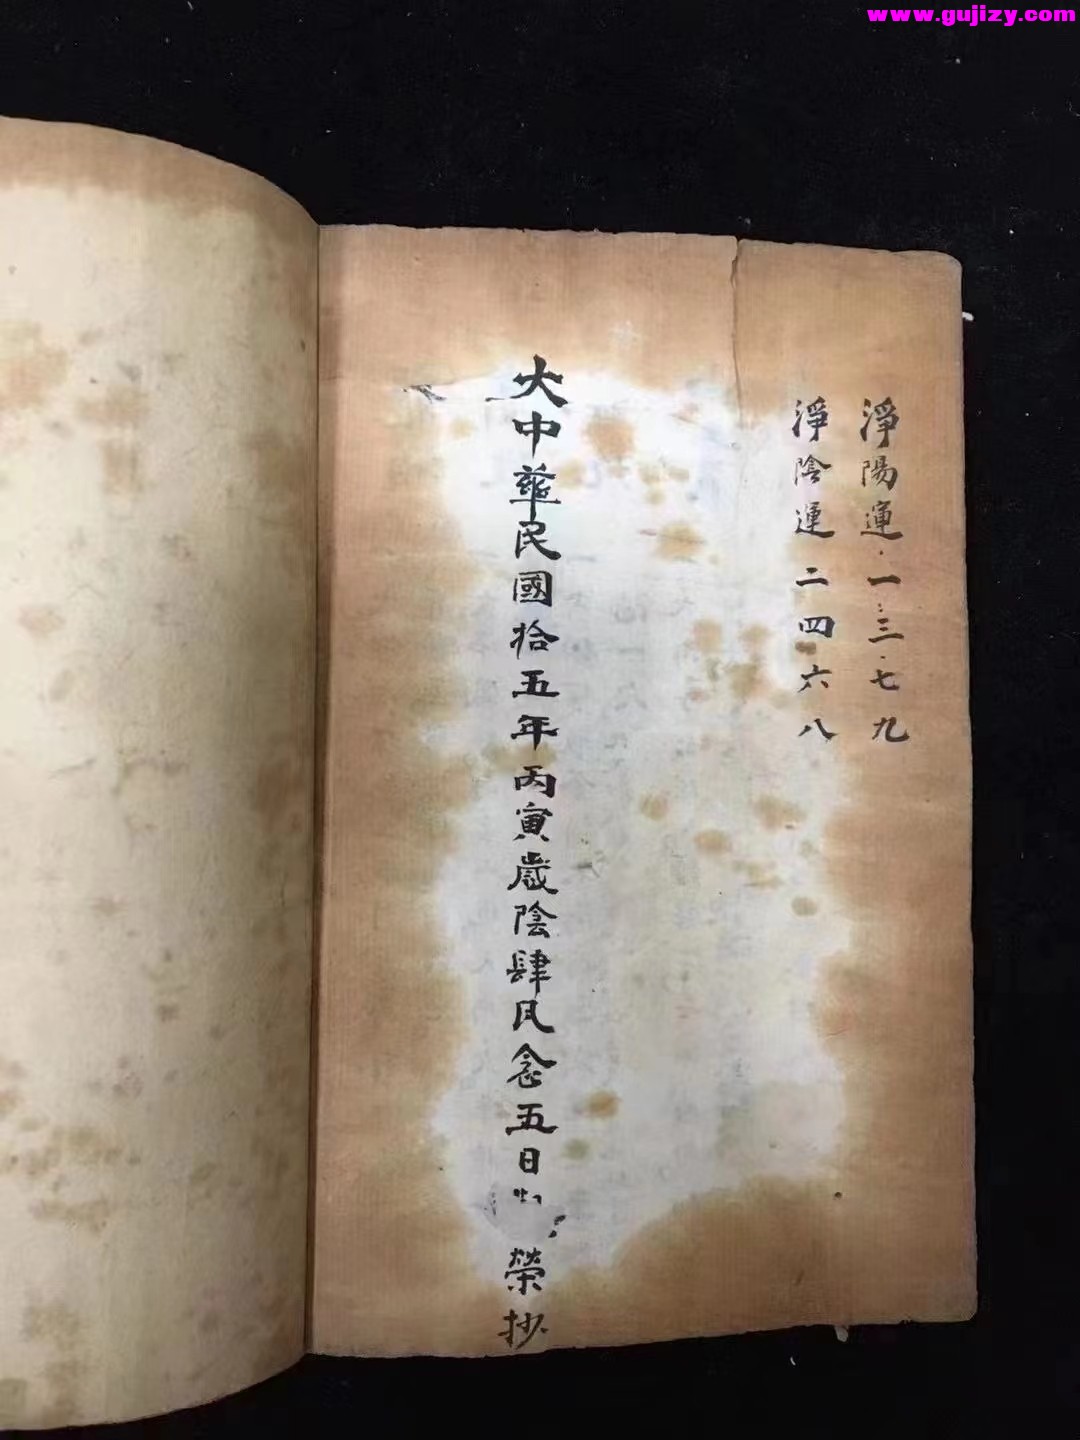 www.gujizy.com
淨陽運·一·三·七九
淨陰運二四六八
大中華民國拾五年丙寅歲陰肆月念五日榮抄